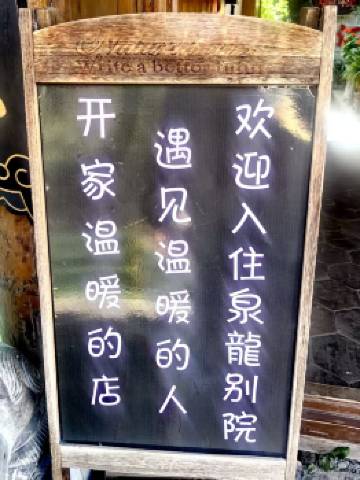 Write a better
开家温暖的店
遇见温暖的人
欢迎入住泉龍别院